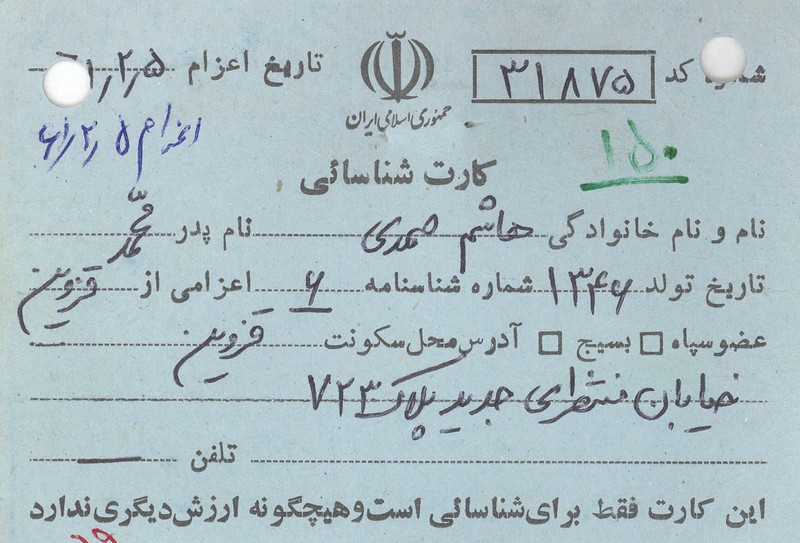 شماره کد ۳۱۸۷۵ تاریخ اعزام ۶۱٫۲٫۵
جمهوری اسلامی ایران
اعزام ۶۱٫۲٫۵
۱۵۰
کارت شناسائی
نام و نام خانوادگی هاشم صمدی نام پدر محمد
تاریخ تولد ۱۳۴۶ شماره شناسنامه ۶ اعزامی از قزوین
عضو سپاه □ بسیج □ آدرس محل سکونت قزوین
خیابان منتظری جدید پلاک ۷۲۳
تلفن —
این کارت فقط برای شناسائی است و هیچگونه ارزش دیگری ندارد